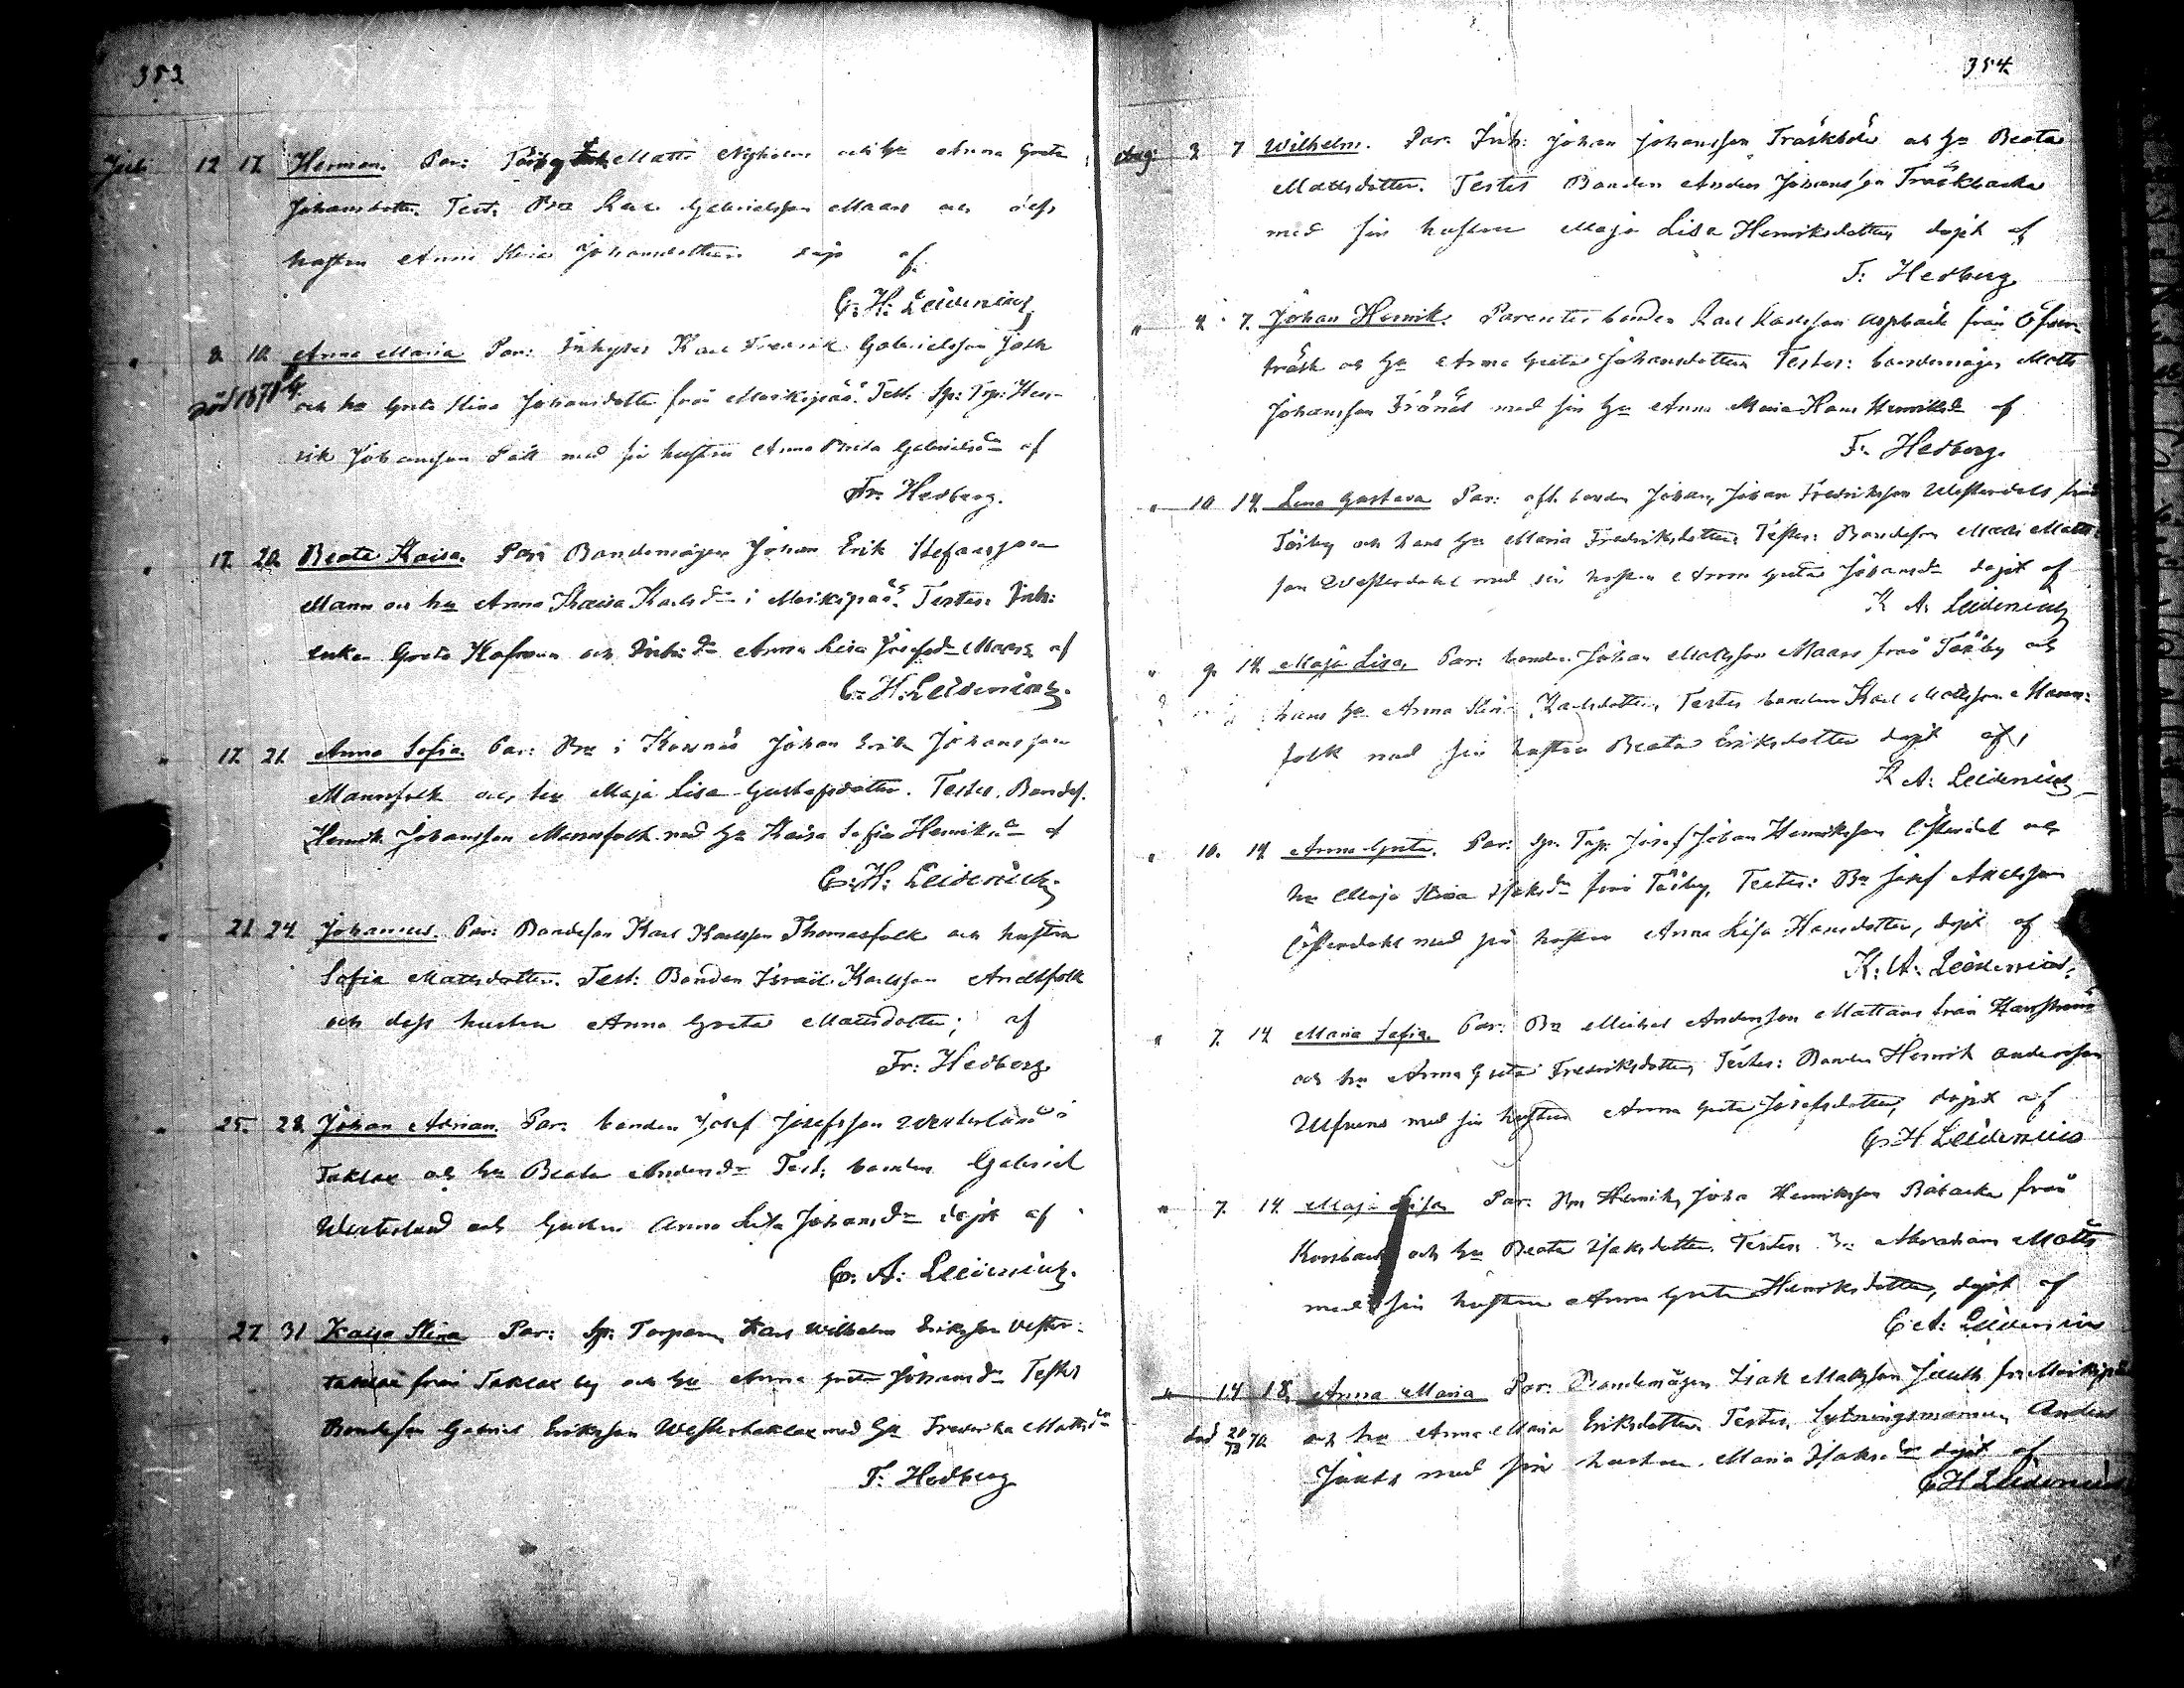 353
Juli 12 17. Herman. Par: Töjby Inh. Matts Nyholm och hu Anna Greta
Johansdotter. Test: Bo Gabrielsson Maars och dess
hustru Anna Stina Johansdotter döpt af
C. H: Leidenius
" 8. 10. Anna Maria Par: Inhyses Karl Fredrik Gabrielsson
död 1871 och hu Greta Stina Johansdotter från Moikipää. Test. Sp: Trp: Hen-
rik Johansson med sin hustru Anna Brita Gabrielsdr af
Fr. Hedberg.
" 17. 20. Beata Kaisa. Par: Bondemågen Johan Erik Stefansson
Mann och hu Anna Kaisa Karlsdr i Moikipää. Testes: Inh:
enkan Greta och Inh: dr Anna Lisa Josefsdr Maars af
C. H: Leidenius.
" 17. 21. Anna Sofia. Par: Bn i Korsnäs Johan Erik Johansson
Mannsfolk och hu Maja Lisa Gustafsdotter. Testes. Bondes.
Henrik Johansson Mannsfolk med hu Kaisa Sofia Henriksdr af
C. H: Leidenius
" 21. 24. Johannes. Par: Bondeson Karl Karlsson Thomasfolk och hustru
Sofia Mattsdotter. Test: Bonden Israel Karlsson Andtfolk
och dess hustru Anna Greta Mattsdotter; af
Fr: Hedberg.
" 25. 28. Johan Adrian. Par. bonden Josef Josefsson Westerlund i
Taklax och hu Beata Andersdr Test: bonden Gabriel
Westerlund och hustru Anna Lisa Johansdr döpt af
C. A: Leidenius.
" 27. 31 Kaisa Stina Par: Sp: Torparen Karl Wilhelm Eriksson Vester-
taklax från Taklax by och hu Anna Greta Johansdr Testes
Bondeson Gabriel Eriksson Westertaklax med hu Fredrika Mattsdr
F: Hedberg
354.
Aug: 3 7 Wilhelm. Par. Inh: Johan Johansson Träskböle och hu Beata
Mattsdotter. Testes Bonden Anders Johansson Träskbacka
med sin hustru Maja Lisa Henriksdotter, döpt af
F: Hedberg
" 4. 7. Johan Henrik. Parentes bonden Karl Karlsson Aspback från Öfver-
träsk och hu Anna Greta Johansdotter Testes: bondemågen Matts
Johansson Frönäs med sin hu Anna Maria Henriksdr af
F. Hedberg.
" 10 14. Lena Gustava Par: bonden Johan, Johan Fredriksson Westerdahl från
Töjby och hans hu Maria Fredriksdotter. Testes: Bondeson Matts Matts-
son Westerdahl med sin hustru Anna Greta Johansdr döpt af
K A. Leidenius
" 9. 14. Maja Lisa, Par: bonden Johan Mattsson Maars från Töjby och
hans hu Anna Stina Karlsdotter, Testes bonden Karl Mattsson Manns-
folk med sin hustru Beata Eriksdotter döpt af,
K A: Leidenius
" 10. 14. Anna Greta. Par: Sp. Trp: Josef Johan Henriksson Österdal och
hu Maja Stina Isaksdr från Töjby, Testes: Bn Josef Axelsson
Österdahl med sin hustru Anna Lisa Hansdotter, döpt af
K. A: Leidenius.
" 7. 14. Maria Sofia. Par: Bn Mickel Andersson Mattans från Harrström
och hu Anna Greta Fredriksdotter, Testes: Bonden Henrik Andersson
Ulfvens med sin hustru Anna Greta Josefsdotter, döpt af
C. H Leidenius
" 7. 14. Maja Lisa Par: Bn Henrik, Joha Henriksson Båtacka från
Korsbäck och hu Beata Isaksdotter. Testes. Bn Abraham Matts
med sin hustru Anna Greta Henriksdotter, döpt af
C A: Leidenius
" 14 18. Anna Maria Par: Bondemågen Isak Mattsson Juuth från Moikipää
död 20/12 70 och hu Anna Maria Eriksdotter. Testes, Sytningsmannen Anders
Juuth med sin hustru Maria Isaksdr döpt af
C. H Leidenius